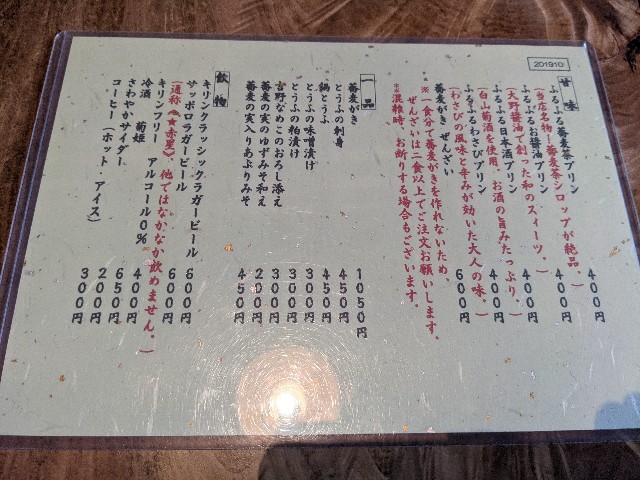 201910
甘味
ふるふる蕎麦茶プリン 400円
(当店名物!蕎麦茶シロップが絶品。)
ふるふるお醤油プリン 400円
(大野醤油で創った和のスィーツ。)
ふるふる日本酒プリン 400円
(白山菊酒を使用、お酒の旨みたっぷり。)
ふるふるわさびプリン 400円
(わさびの風味と辛みが効いた大人の味。)
蕎麦がき ぜんざい 600円
※一食分で蕎麦がきを作れないため、
ぜんざいは二食以上でご注文お願いします。
※混雑時、お断りする場合もございます。
一品
蕎麦がき 1050円
とうふの刺身 450円
鍋とうふ 450円
とうふの味噌漬け 300円
とうふの粕漬け 300円
吉野なめこのおろし添え 300円
蕎麦の実のゆずみそ和え 200円
蕎麦の実入りあぶりみそ 450円
飲物
キリンクラッシックラガービール 600円
サッポロラガービール 600円
(通称《★赤星》、他ではなかなか飲めません。)
キリンフリー アルコール0% 400円
冷酒 菊姫 650円
さわやかサイダー 200円
コーヒー(ホット・アイス) 300円